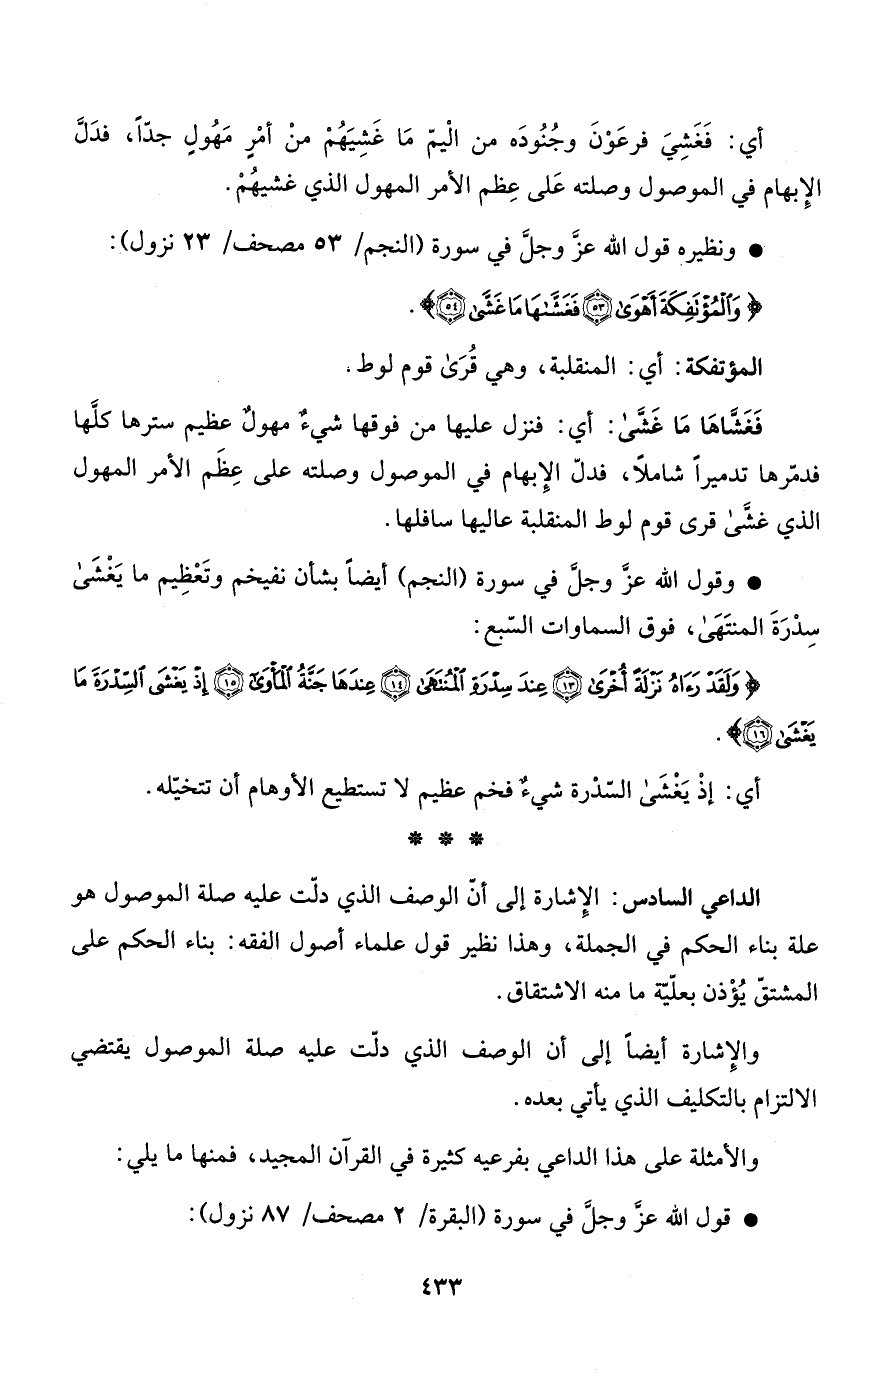 أي: فَغَشِيَ فرعَوْنَ وجُنُودَه من الْيمّ مَا غَشِيَهُمْ منْ أمْرٍ مَهُولٍ جدّاً، فدَلَّ
الإِبهام في الموصول وصلته عَلى عِظم الأمر المهول الذي غشيهُمْ.
● ونظيره قول الله عزَّ وجلَّ في سورة (النجم/ ٥٣ مصحف/ ٢٣ نزول):
﴿وَٱلْمُؤْتَفِكَةَ أَهْوَىٰ ﴿٥٣﴾ فَغَشَّىٰهَا مَا غَشَّىٰ ﴿٥٤﴾﴾.
المؤتفكة: أي: المنقلبة، وهي قُرَىٰ قوم لوط.
فَغَشَّاهَا مَا غَشَّىٰ: أي: فنزل عليها من فوقها شيءٌ مهولٌ عظيم سترها كلَّها
فدمّرها تدميراً شاملاً، فدلّ الإِبهام في الموصول وصلته على عِظَم الأمر المهول
الذي غشَّىٰ قرى قوم لوط المنقلبة عاليها سافلها.
● وقول الله عزَّ وجلَّ في سورة (النجم) أيضاً بشأن نفيخم وتَعْظِيم ما يَغْشَىٰ
سِدْرَةَ المنتَهَىٰ، فوق السماوات السّبع:
﴿وَلَقَدْ رَءَاهُ نَزْلَةً أُخْرَىٰ ﴿١٣﴾ عِندَ سِدْرَةِ ٱلْمُنتَهَىٰ ﴿١٤﴾ عِندَهَا جَنَّةُ ٱلْمَأْوَىٰٓ ﴿١٥﴾ إِذْ يَغْشَى ٱلسِّدْرَةَ مَا
يَغْشَىٰ ﴿١٦﴾﴾.
أي: إذْ يَغْشَىٰ السّدْرة شيءٌ فخم عظيم لا تستطيع الأوهام أن تتخيّله.
* * *
الداعي السادس: الإِشارة إلى أنّ الوصف الذي دلّت عليه صلة الموصول هو
علة بناء الحكم في الجملة، وهذا نظير قول علماء أصول الفقه: بناء الحكم على
المشتقّ يُؤْذن بعلّيّة ما منه الاشتقاق.
والإِشارة أيضاً إلى أن الوصف الذي دلّت عليه صلة الموصول يقتضي
الالتزام بالتكليف الذي يأتي بعده.
والأمثلة على هذا الداعي بفرعيه كثيرة في القرآن المجيد، فمنها ما يلي:
● قول الله عزَّ وجلَّ في سورة (البقرة/ ٢ مصحف/ ٨٧ نزول):
٤٣٣